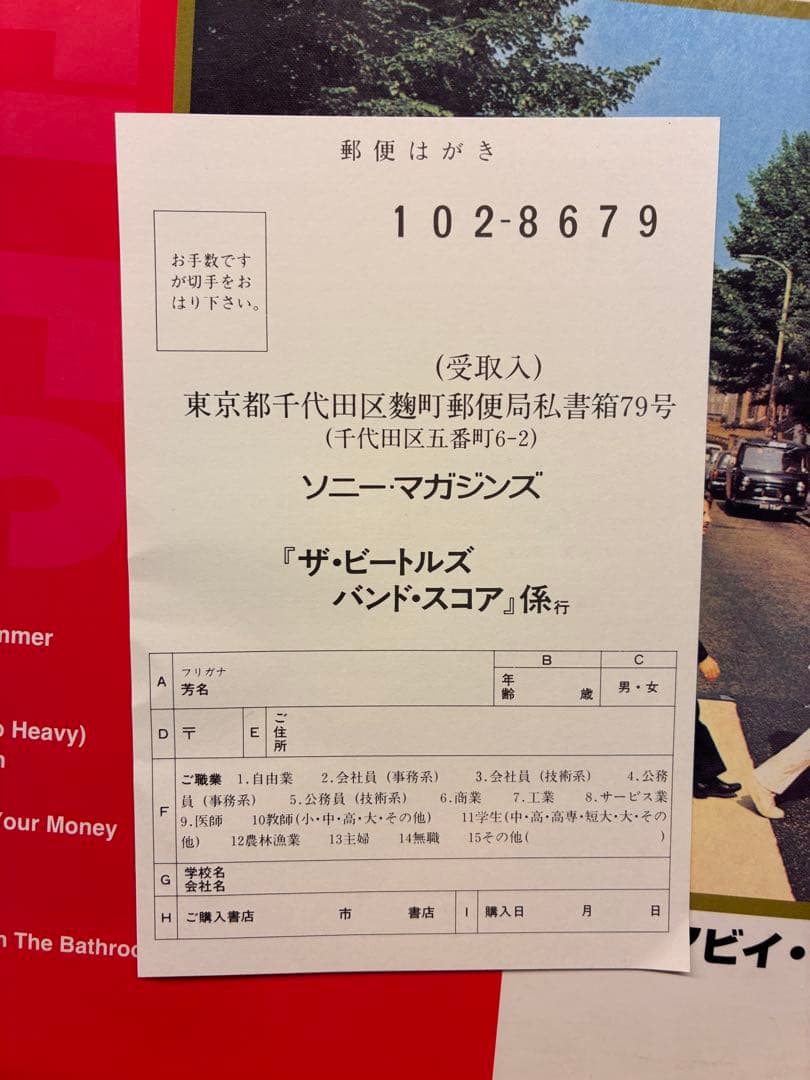 郵便はがき
102-8679
お手数です
が切手をお
はり下さい。
(受取入)
東京都千代田区麴町郵便局私書箱79号
(千代田区五番町6-2)
ソニー・マガジンズ
『ザ・ビートルズ
バンド・スコア』係行
A フリガナ
芳名
B
年齢 歳
C
男・女
D 〒 E ご住所
F ご職業 1.自由業 2.会社員(事務系) 3.会社員(技術系) 4.公務
員(事務系) 5.公務員(技術系) 6.商業 7.工業 8.サービス業
9.医師 10教師(小・中・高・大・その他) 11学生(中・高・高専・短大・大・その
他) 12農林漁業 13主婦 14無職 15その他( )
G 学校名
会社名
H ご購入書店 市 書店 I 購入日 月 日
mmer
o Heavy)
n
Your Money
n The Bathroo
ビイ・